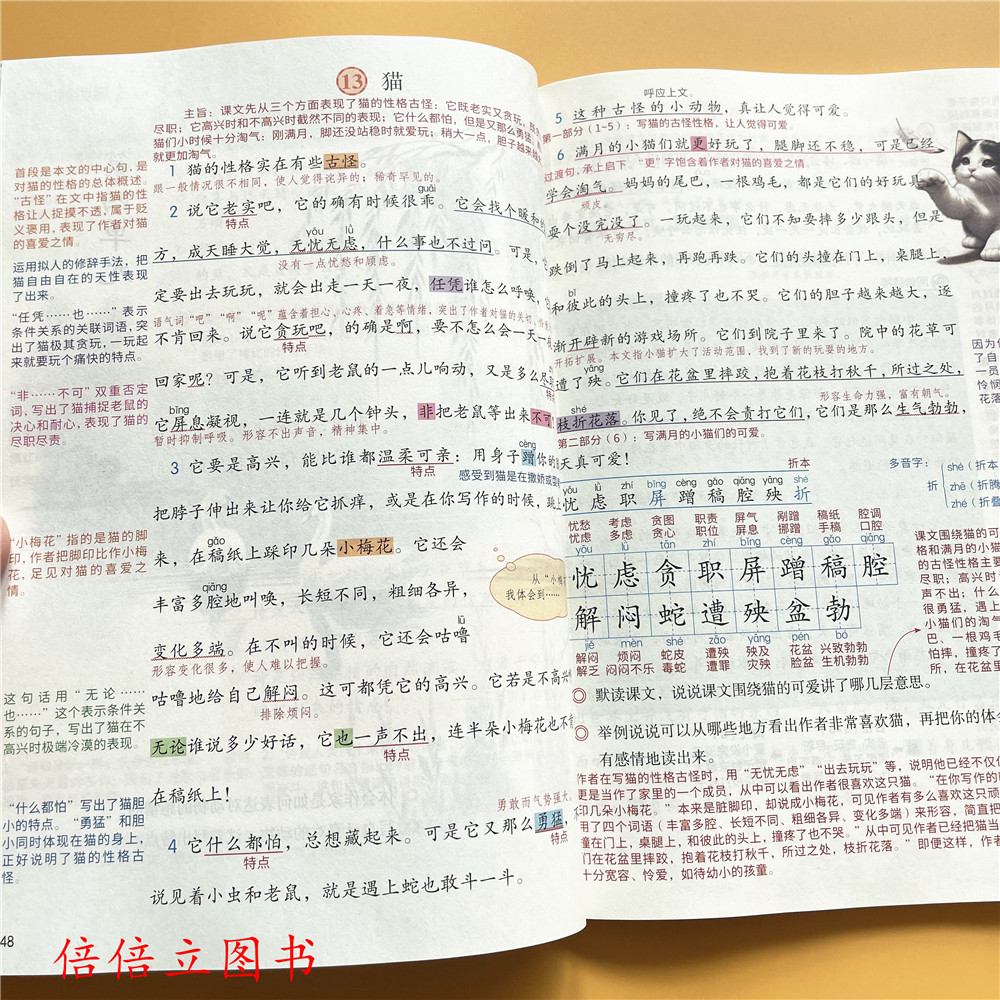 13 猫
主旨：课文先从三个方面表现了猫的性格古怪：它既老实又贪玩，既会
尽职；它高兴时和不高兴时截然不同的表现；它什么都怕，但是又那么勇猛。
猫们小时候十分淘气：刚满月，脚还没站稳时就爱玩；稍大一点，胆子越来越
就更加淘气。
1 猫的性格实在有些古怪。
跟一般情况很不相同，使人觉得诧异的；稀奇罕见的。
guāi
2 说它老实吧，它的确有时候很乖。它会找个暖和的
特点
yōu lǜ
方，成天睡大觉，无忧无虑，什么事也不过问。可是，
没有一点忧愁和顾虑。
定要出去玩玩，就会出走一天一夜，任凭谁怎么呼唤，
语气词“吧”“啊”“呢”蕴含着担心、心疼、着急等情绪，突出了作者对猫的关切
不肯回来。说它贪玩吧，的确是啊，要不怎么会一天一夜
特点
回家呢？可是，它听到老鼠的一点儿响动，又是多么尽职
bǐng
它屏息凝视，一连就是几个钟头，非把老鼠等出来不可！
暂时抑制呼吸。形容不出声音，精神集中。
cèng
3 它要是高兴，能比谁都温柔可亲：用身子蹭你的
特点
感受到猫是在撒娇或
把脖子伸出来让你给它抓痒，或是在你写作的时候，跳上
gǎo
来，在稿纸上踩印几朵小梅花。它还会
qiāng
丰富多腔地叫唤，长短不同，粗细各异，
lū
变化多端。在不叫的时候，它还会咕噜
形容变化很多，使人难以把握。
咕噜地给自己解闷。这可都凭它的高兴。它若是不高兴
排除烦闷。
无论谁说多少好话，它也一声不出，连半朵小梅花也不肯
特点
在稿纸上！
勇敢而气势强大。
4 它什么都怕，总想藏起来。可是它又那么勇猛，
特点
特点
说见着小虫和老鼠，就是遇上蛇也敢斗一斗。
从“小梅
我体会到……
首段是本文的中心句，是
对猫的性格的总体概述。
“古怪”在文中指猫的性
格让人捉摸不透，属于贬
义褒用，表现了作者对猫
的喜爱之情。
运用拟人的修辞手法，把
猫自由自在的天性表现
了出来。
“任凭……也……”表示
条件关系的关联词语，突
出了猫极其贪玩，一玩起
来就要玩个痛快的特点。
“非……不可”双重否定
词，写出了猫捕捉老鼠的
决心和耐心，表现了猫的
尽职尽责。
“小梅花”指的是猫的脚
印，作者把脚印比作小梅
花，足见对猫的喜爱之
情。
这句话用“无论……
也……”这个表示条件关
系的句子，写出了猫在不
高兴时极端冷漠的表现。
“什么都怕”写出了猫胆
小的特点。“勇猛”和胆
小同时体现在猫的身上，
正好说明了猫的性格古
怪。
48
倍倍立图书
呼应上文。
5 这种古怪的小动物，真让人觉得可爱。
第一部分（1-5）：写猫的古怪性格，让人觉得可爱。
6 满月的小猫们就更好玩了，腿脚还不稳，可是已经
过渡句，承上启下。“更”字饱含着作者对猫的喜爱之情。
学会淘气。妈妈的尾巴，一根鸡毛，都是它们的好玩具，
顽皮。
耍个没完没了。一玩起来，它们不知要摔多少跟头，但是
无穷尽。
跌倒了马上起来，再跑再跌。它们的头撞在门上，桌腿上，
bǐ
和彼此的头上，撞疼了也不哭。它们的胆子越来越大，逐
渐开辟新的游戏场所。它们到院子里来了。院中的花草可
开拓扩展。本文指小猫扩大了活动范围，找到了新的玩耍的地方。
yāng
遭了殃。它们在花盆里摔跤，抱着花枝打秋千，所过之处，
形容生命力强，富有朝气。
shé
枝折花落。你见了，绝不会责打它们，它们是那么生气勃勃，
第二部分（6）：写满月的小猫们的可爱。
天真可爱！
折本
yōu lǜ zhí bǐng cèng gǎo qiāng yāng shé
忧 虑 职 屏 蹭 稿 腔 殃 折
多音字：
折
shé（折本
zhē（折腾
zhé（折叠
忧愁 考虑 贪图 职责 屏气 剐蹭 稿纸 腔调
忧心 多虑 贪心 职位 屏息 挪蹭 手稿 口腔
yōu lǜ tān zhí bǐng cèng gǎo qiāng
忧 虑 贪 职 屏 蹭 稿 腔
解 闷 蛇 遭 殃 盆 勃
jiě mèn shé zāo yāng pén bó
解闷 烦闷 蛇皮 遭殃 殃及 花盆 兴致勃勃
解乏 闷闷不乐 毒蛇 遭罪 灾殃 脸盆 生机勃勃
◎ 默读课文，说说课文围绕猫的可爱讲了哪几层意思。
◎ 举例说说可以从哪些地方看出作者非常喜欢猫，再把你的体会
有感情地读出来。
作者在写猫的性格古怪时，用“无忧无虑”“出去玩玩”等，说明他已经不仅仅
更是当作了家里的一个成员，从中可以看出作者很喜欢这只猫。“在你写作的时
印几朵小梅花。”本来是脏脚印，却说成小梅花，可见作者有多么喜爱这只顽
用了四个词语（丰富多腔、长短不同、粗细各异、变化多端）来形容，简直把
撞在门上，桌腿上，和彼此的头上，撞疼了也不哭。”从中可见作者已经把猫当
们在花盆里摔跤，抱着花枝打秋千，所过之处，枝折花落。”即便这样，作者
十分宽容、怜爱，如待幼小的孩童。
因为作
了自
一员
怜悯
花落
课文围绕猫的可
格和满月的小猫
的古怪性格主要
尽职；高兴时温
声不出；什么
很勇猛，遇上
小猫们的淘气
巴、一根鸡毛
怕摔，摔疼了
所，在花盆里